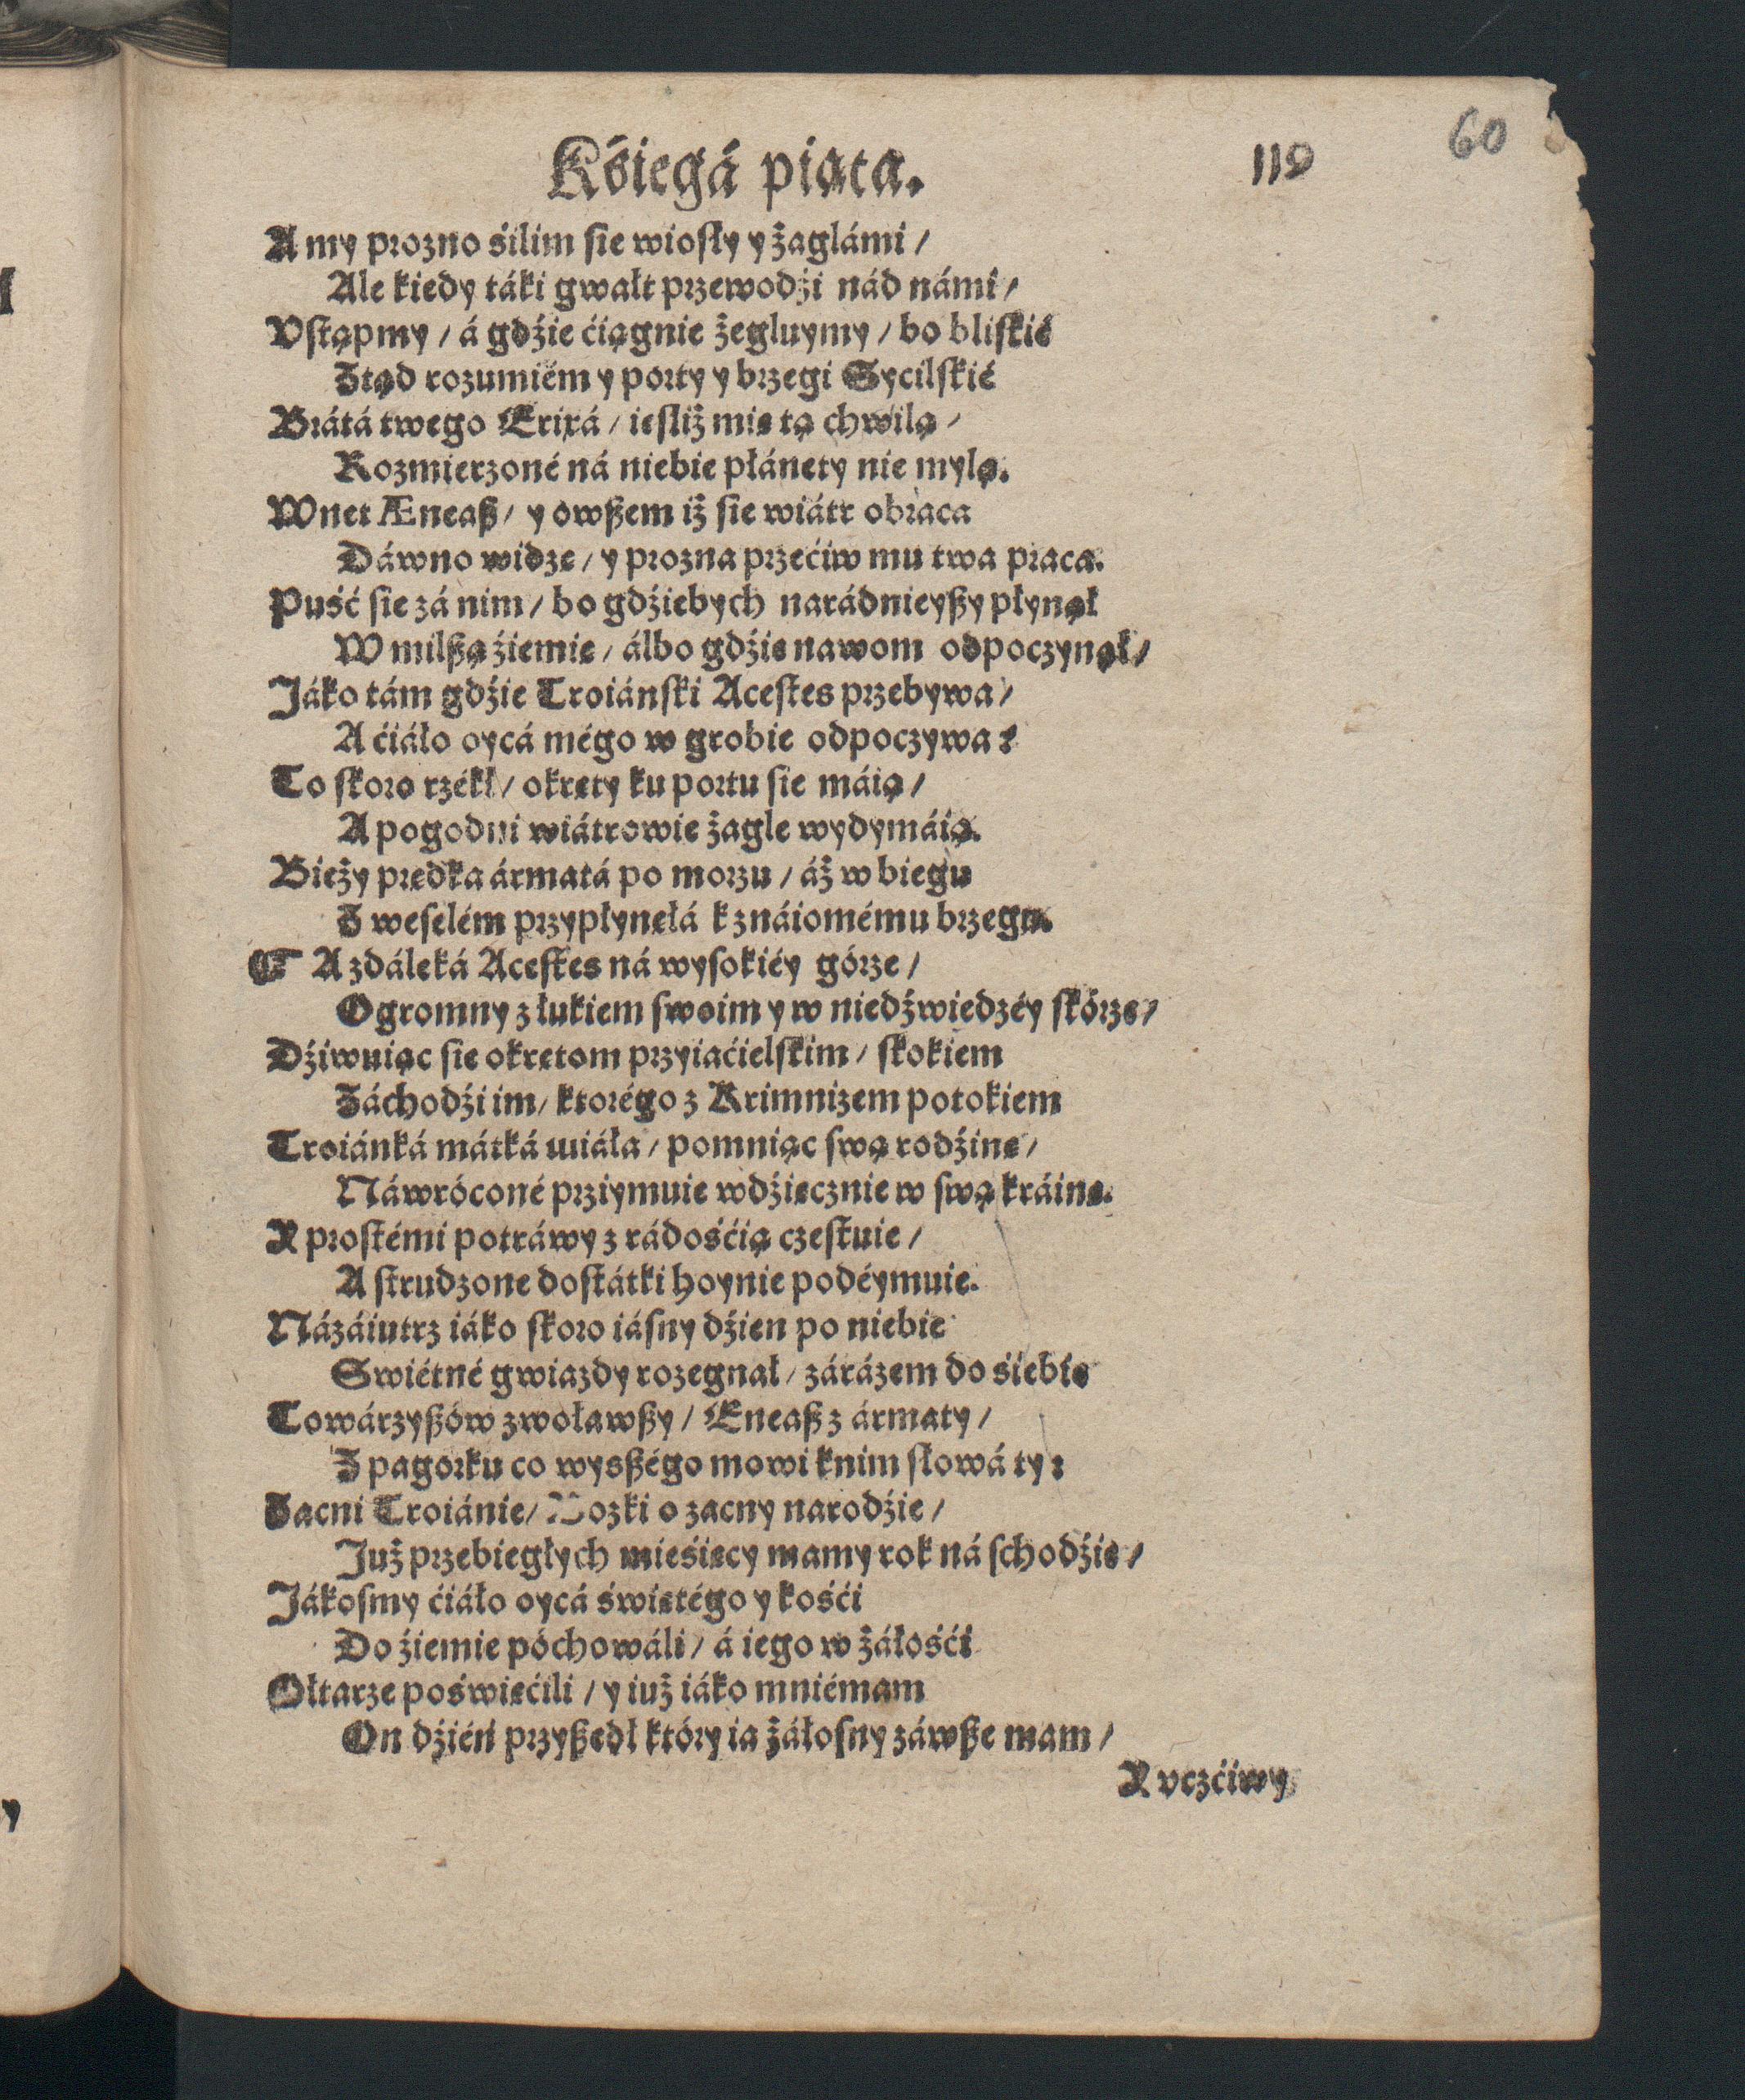 Kśięgá piąta.
119
60
A my prozno śilim sie wiosły y żaglámi /
Ale kiedy táki gwałt przewodźi nád námi /
Vstąpmy / á gdźie ćiągnie żegluymy / bo bliskié
Ztąd rozumiém y porty y brzegi Sycilskié
Brátá twego Erixá / iesliż mię tą chwilą /
Rozmierzoné ná niebie płánety nie mylą.
Wnet Æneaß / y owßem iż sie wiátr obraca
Dáwno widzę / y prozna przećiw mu twa praca.
Puść sie zá nim / bo gdźiebych narádnieyßy płynął
W milßą źiemię / álbo gdźie nawom odpoczynął /
Jáko tám gdźie Troiánski Acestes przebywa /
A ćiáło oycá mégo w grobie odpoczywa?
To skoro rzékł / okręty ku portu sie máią /
A pogodni wiátrowie żagle wydymáią.
Bieży prędka ármatá po morzu / áż w biegu
Z weselém przypłynęłá k znáiomému brzegu.
A zdáleká Acestes ná wysokiéy górze /
Ogromny z łukiem swoim y w niedźwiedzéy skórze /
Dźiwuiąc sie okrętom przyiaćielskim / skokiem
Záchodźi im / ktorégo z Krimnizem potokiem
Troiánká mátká miáła / pomniąc swą rodźinę /
Náwróconé prziymuie wdźięcznie w swą kráinę.
Y prostémi potráwy z rádośćią częstuie /
A strudzone dostátki hoynie podéymuie.
Názáiutrz iáko skoro iásny dźien po niebie
Swiétné gwiazdy rozegnał / zárázem do śiebie
Towárzyßów zwoławßy / Eneaß z ármaty /
Z pagorku co wysßégo mowi knim słowá ty:
Zacni Troiánie / Bozki o zacny narodźie /
Już przebiegłych mieśięcy mamy rok ná schodźie /
Jákosmy ćiáło oycá świętégo y kośći
Do źiemie póchowáli / á iego w żáłośći
Ołtarze poświęćili / y iuż iáko mniémam
On dźiéń przyßedł który ia żáłosny záwße mam /
Y vczćiwy